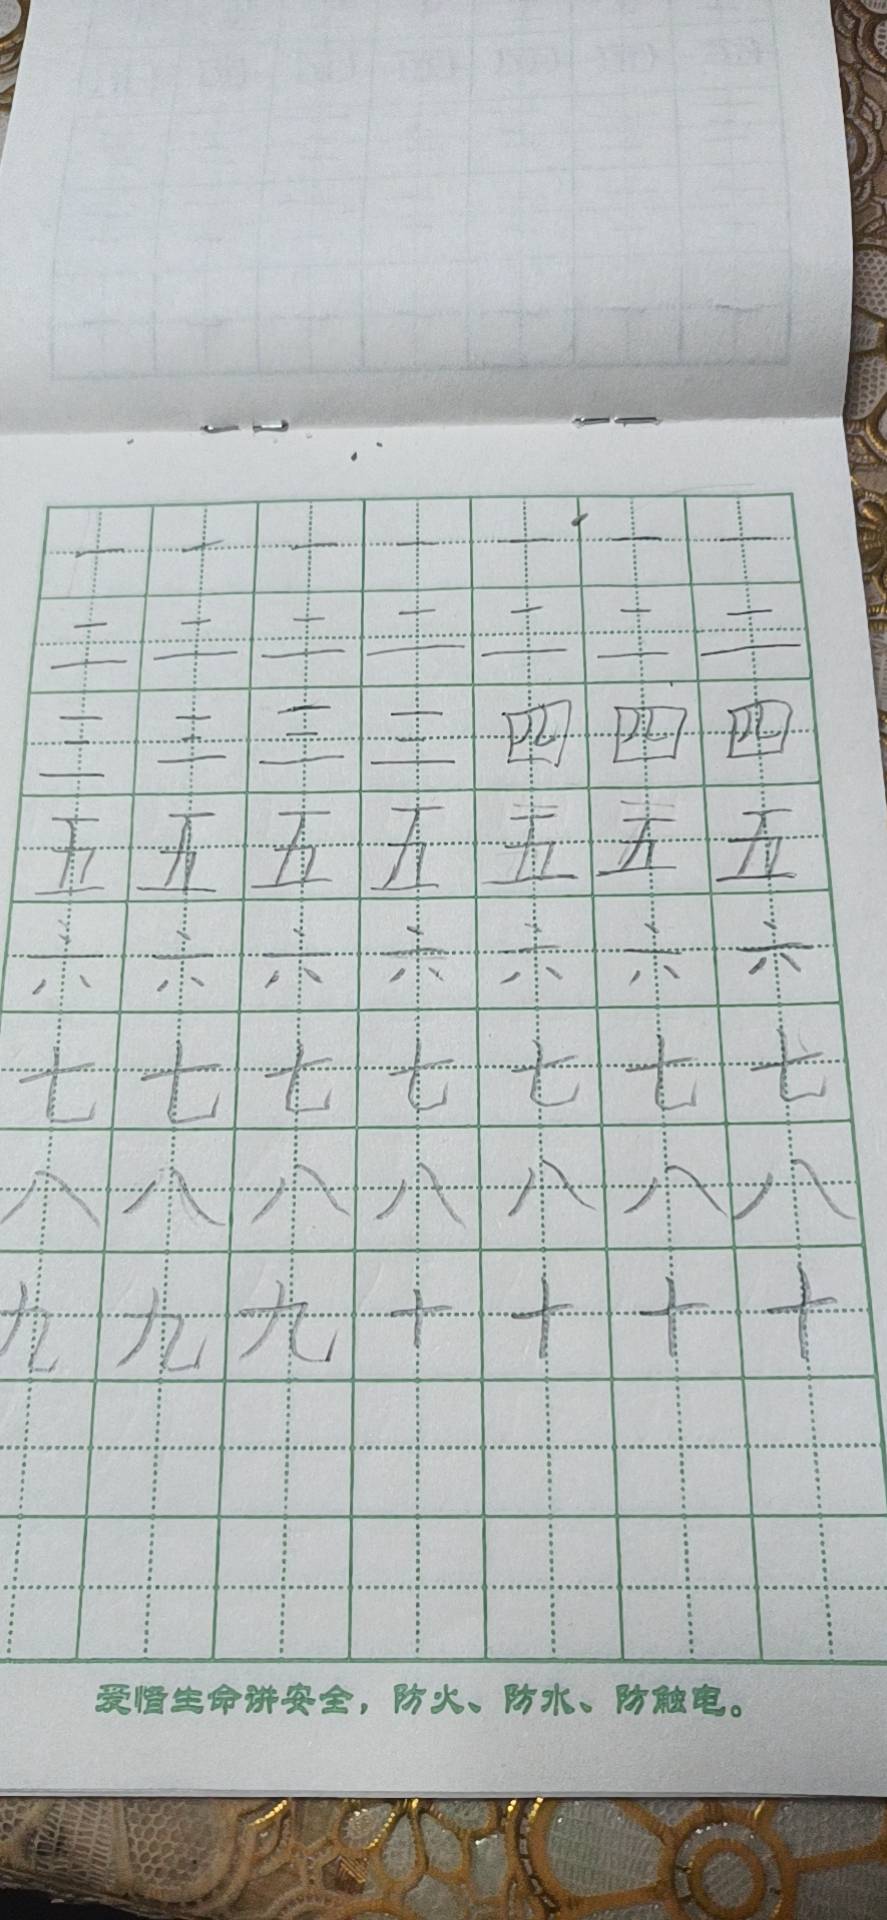 一一一一一一一
二二二二二二二
三三三三四四四
五五五五五五五
六六六六六六六
七七七七七七七
八八八八八八八
九九九十十十十
爱惜生命讲安全，防火、防水、防触电。